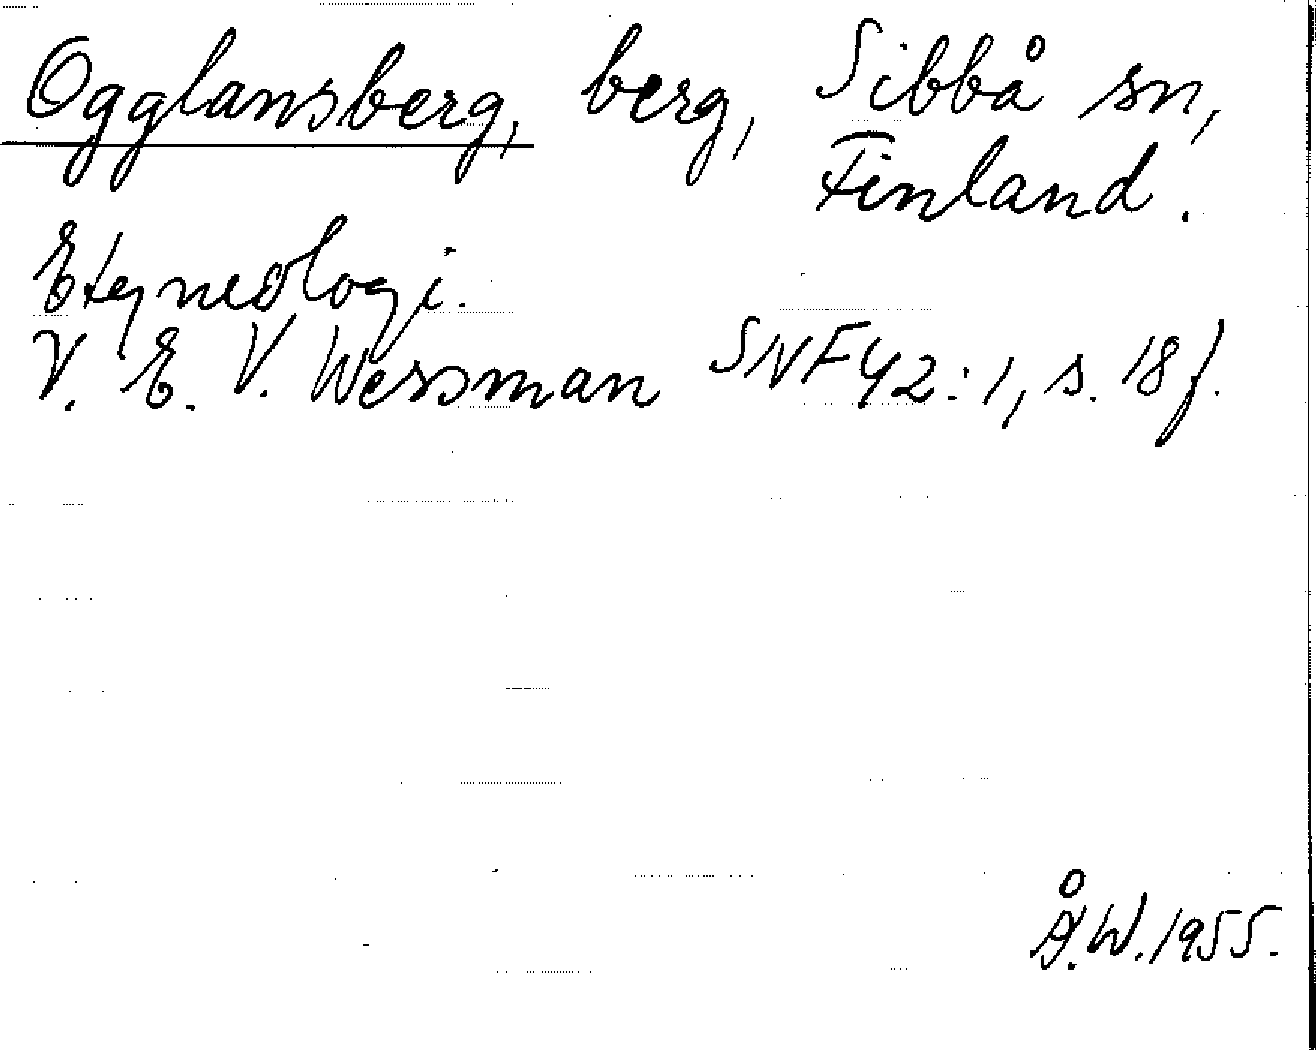 Ogglansberg, berg, Sibbå sn,
Finland.
Etymologi.
V. E. V. Wessman SNF 42:1, s. 18 f.
Å.W. 1955.